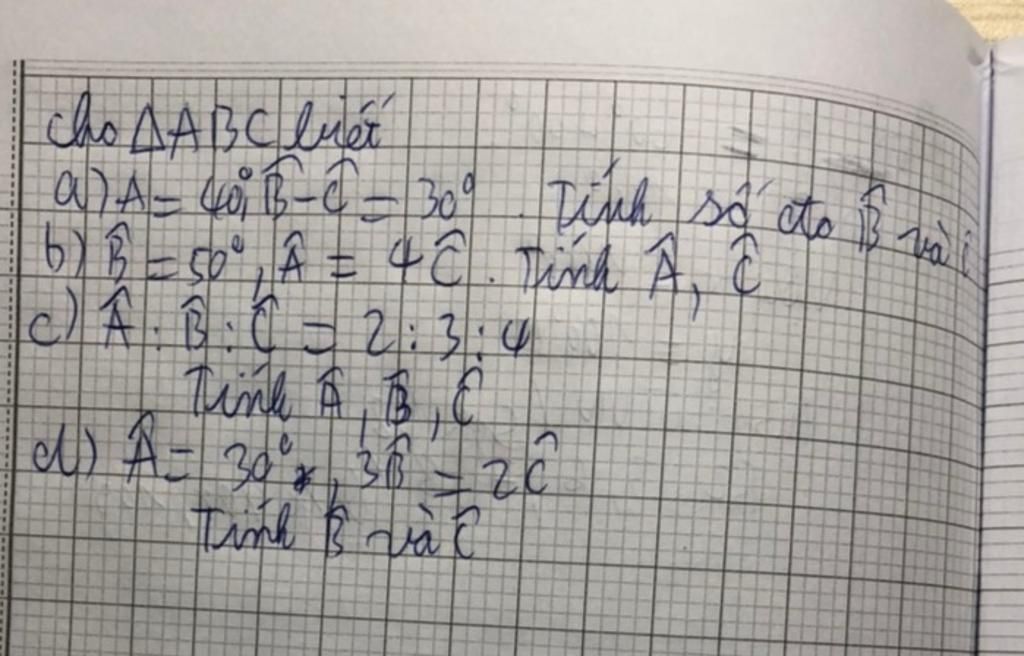 Cho ΔABC biết
a) A = 40°, B̂ - Ĉ = 30°. Tính số đo B̂ và Ĉ
b) B̂ = 50°, Â = 4Ĉ. Tính Â, Ĉ
c) Â : B̂ : Ĉ = 2 : 3 : 4
Tính Â, B̂, Ĉ
d) Â = 30°, 3B̂ = 2Ĉ
Tính B̂ và Ĉ